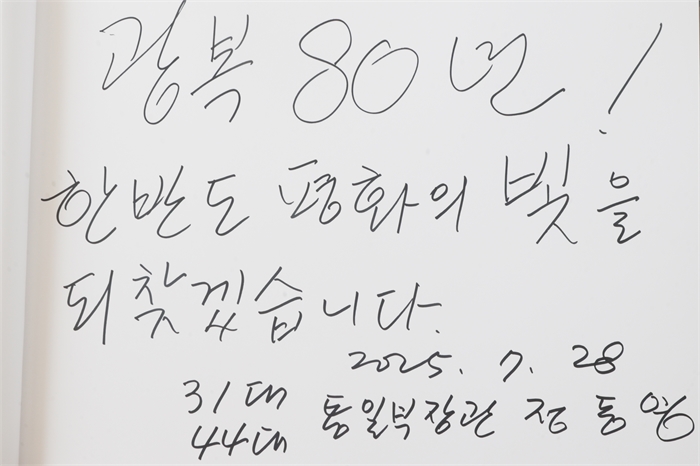 광복 80년!
한반도 평화의 빛을
되찾겠습니다.
2025. 7. 28
31대
44대 통일부장관 정동영